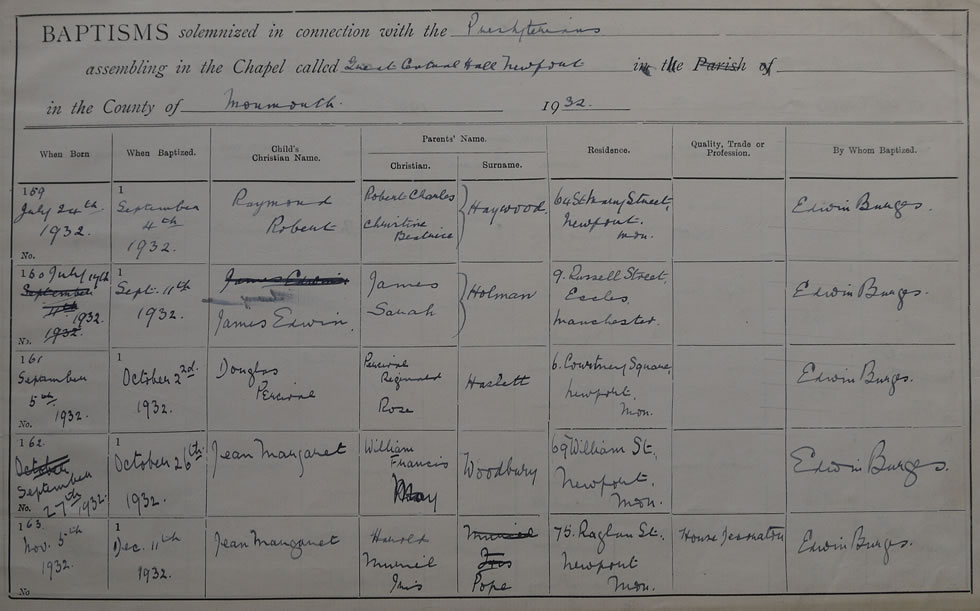 BAPTISMS solemnized in connection with the Presbyterians
assembling in the Chapel called Great Central Hall Newport in the Parish of
in the County of Monmouth. 1932.
When Born When Baptized. Child's Christian Name. Parents' Name. Christian. Surname. Residence. Quality, Trade or Profession. By Whom Baptized.
159 1
July 24th 1932. September 4th 1932. Raymond Robert Robert Charles Christine Beatrice Haywood 64 St Mary Street, Newport. Mon. Edwin Burges.
No.
160 1
July 14th September 11th 1932. 1932. Sept. 11th 1932. James James Edwin. James Sarah Holman 9. Russell Street, Eccles, Manchester. Edwin Burges.
No.
161 1
September 5th 1932. October 2nd. 1932. Douglas Percival Percival Reginald Rose Haslett 6. Courtney Square, Newport. Mon. Edwin Burges.
No.
162. 1
October September 27th 1932. October 26th 1932. Jean Margaret William Francis May Woodbury 69 William St. Newport. Mon. Edwin Burges.
No.
163. 1
Nov. 5th 1932. Dec. 11th 1932. Jean Margaret Harold Muriel Iris Muriel Iris Pope 75. Raglan St. Newport Mon. House Edwin Burges.
No